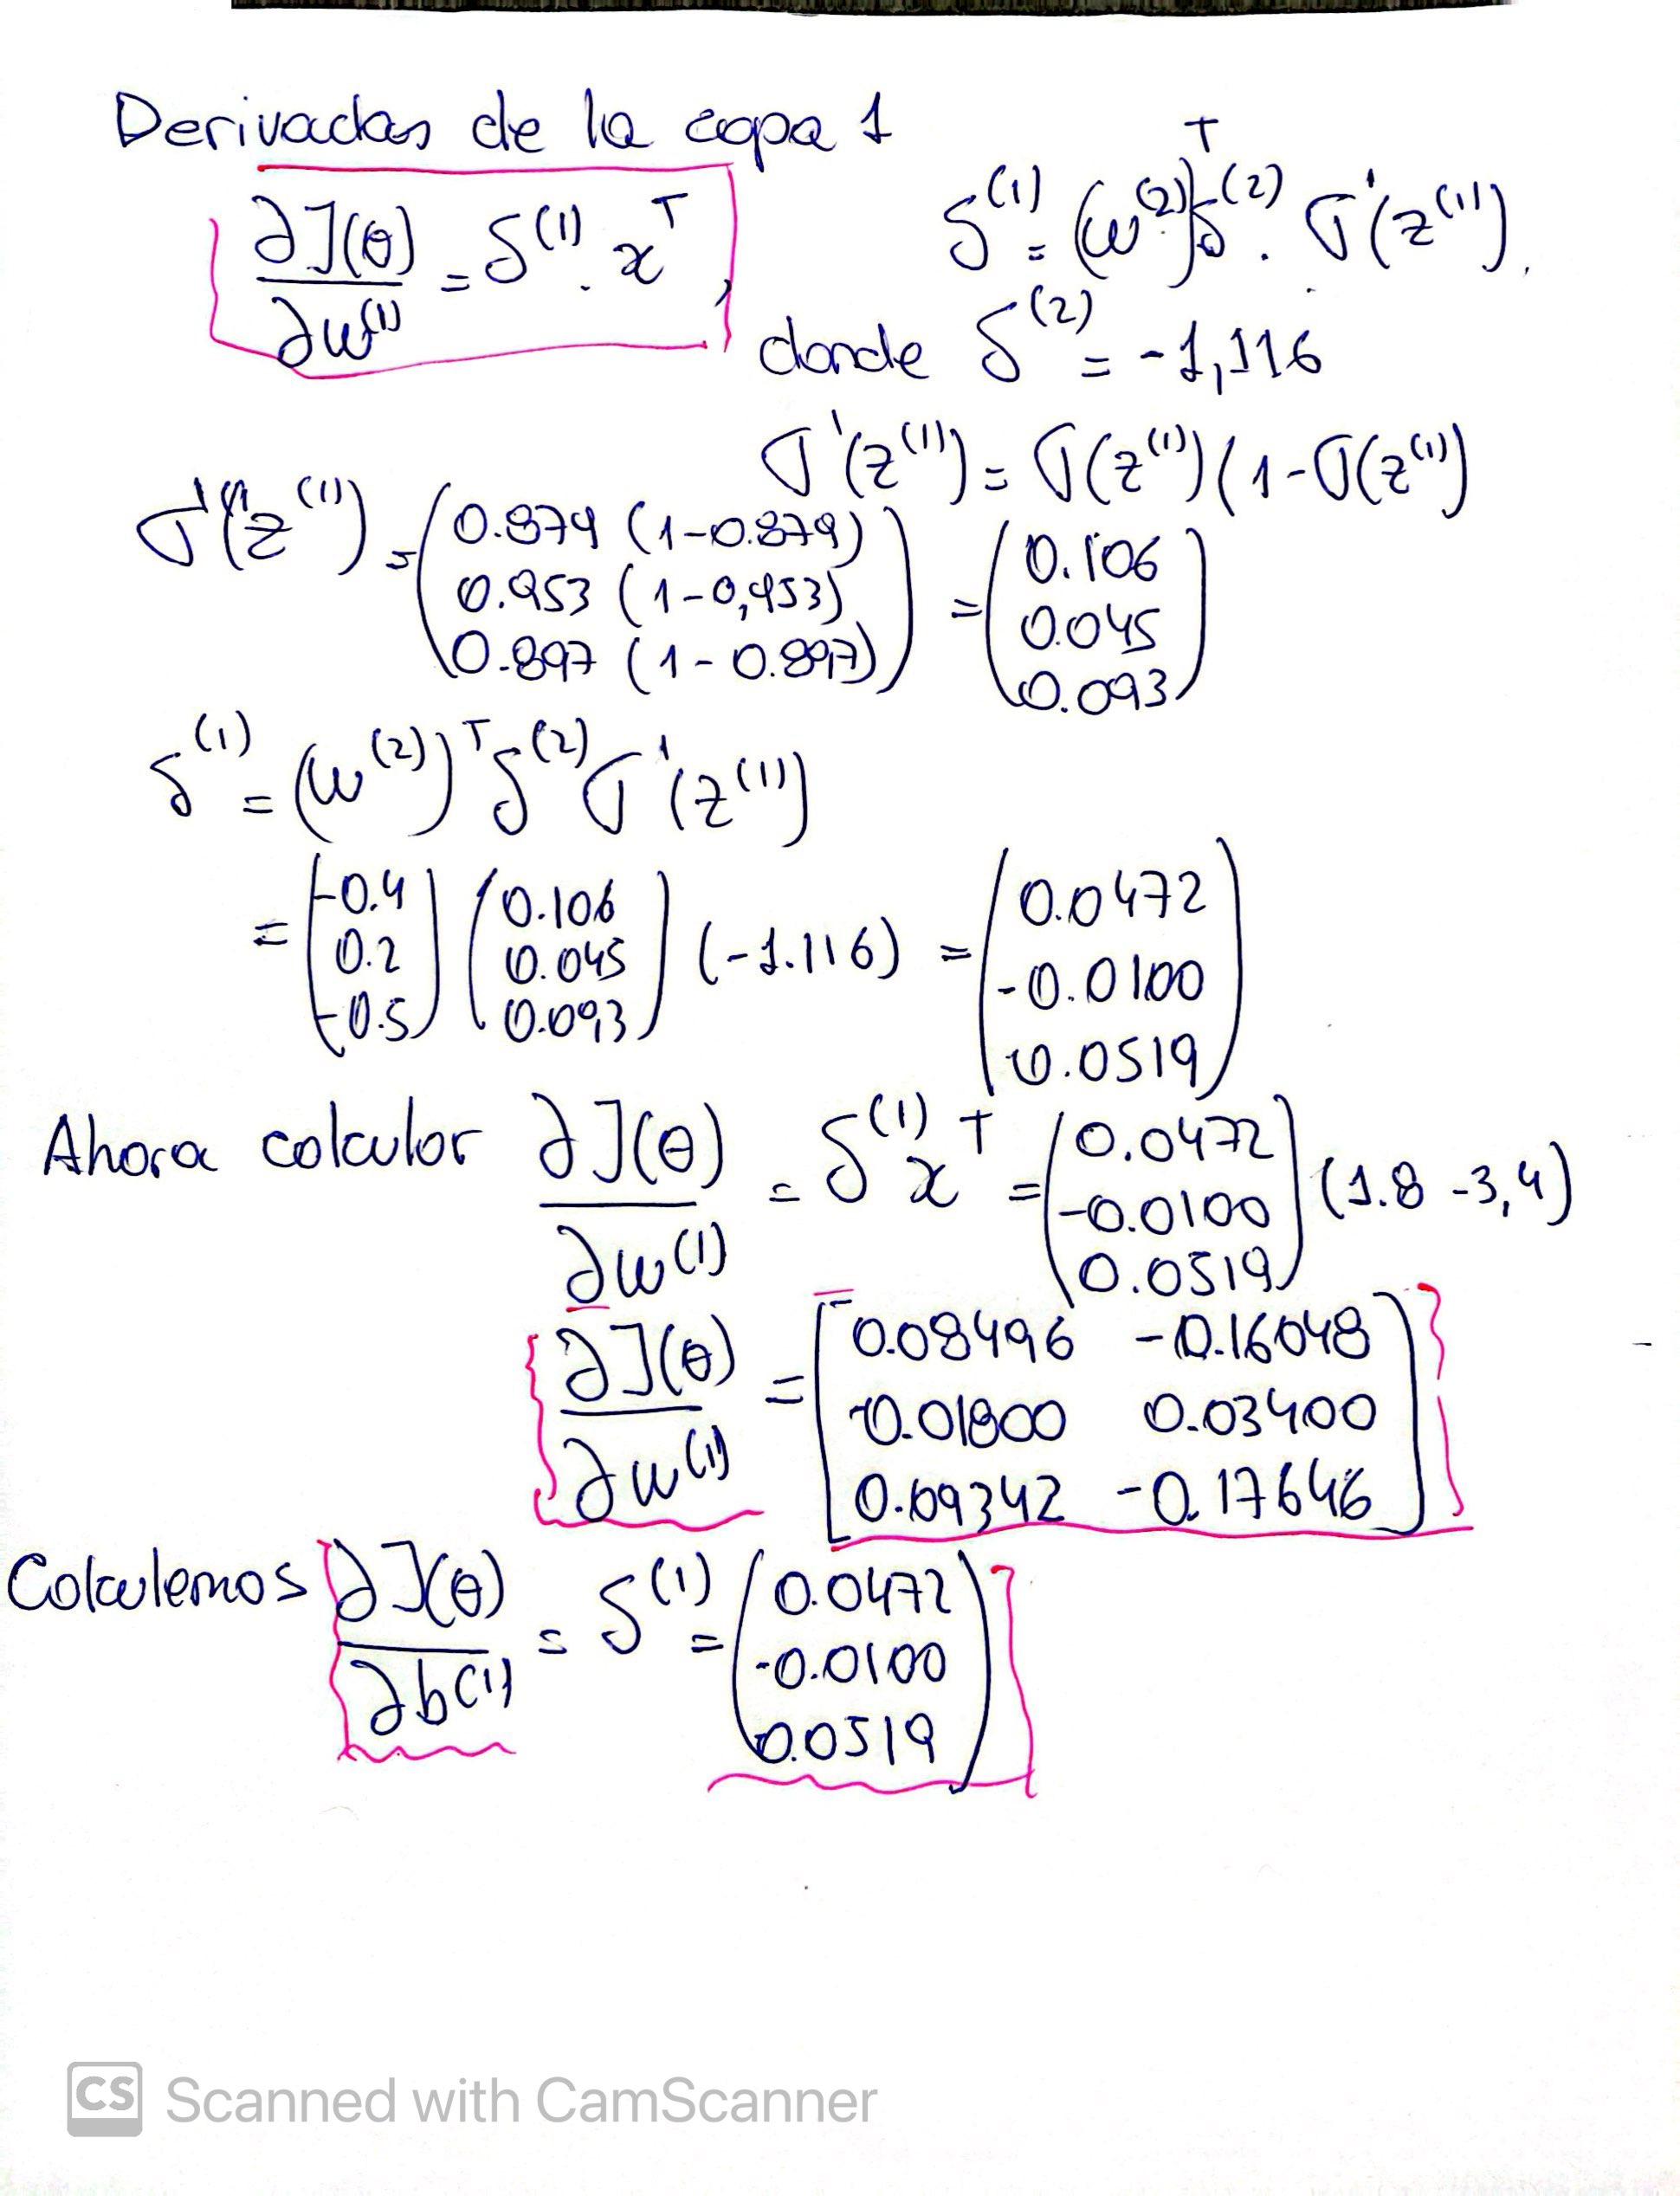 Derivadas de la capa 1
∂J(θ)/∂w⁽¹⁾ = δ⁽¹⁾ . xᵀ, δ⁽¹⁾ = (w⁽²⁾)ᵀδ⁽²⁾ . σ'(z⁽¹⁾).
donde δ⁽²⁾ = -1,116
σ'(z⁽¹⁾) = σ(z⁽¹⁾)(1-σ(z⁽¹⁾)
σ'(z⁽¹⁾) = (0.879 (1-0.879) = (0.106
0.953 (1-0,953) 0.045
0.897 (1-0.897)) 0.093)
δ⁽¹⁾ = (w⁽²⁾)ᵀδ⁽²⁾σ'(z⁽¹⁾)
= (-0.4 (0.106 (0.0472
0.2 0.045 (-1.116) = -0.0100
-0.5) 0.093) 0.0519)
Ahora calcular ∂J(θ)/∂w⁽¹⁾ = δ⁽¹⁾xᵀ = (0.0472
-0.0100 (1.8 -3,4)
0.0519)
∂J(θ)/∂w⁽¹⁾ = [0.08496 -0.16048
-0.01800 0.03400
0.09342 -0.17646]
Calculemos ∂J(θ)/∂b⁽¹⁾ = δ⁽¹⁾ = (0.0472
-0.0100
0.0519)
CS Scanned with CamScanner